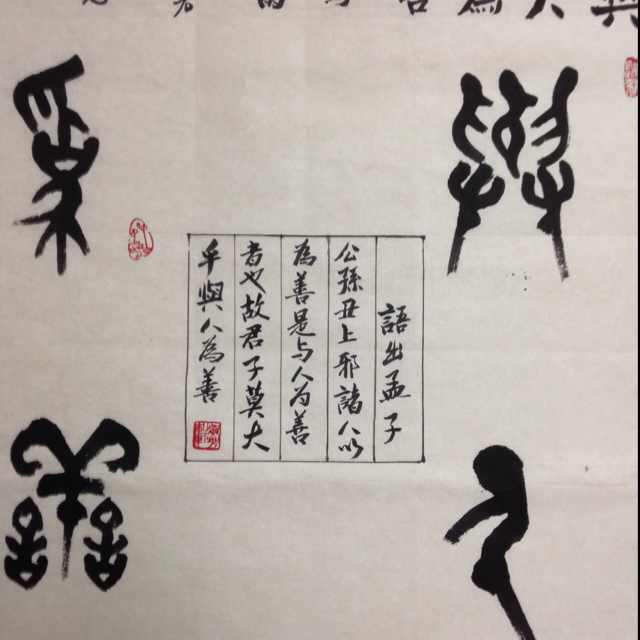 與人
為善
語出孟子
公孫丑上取諸人以
為善是与人为善
者也故君子莫大
乎與人為善